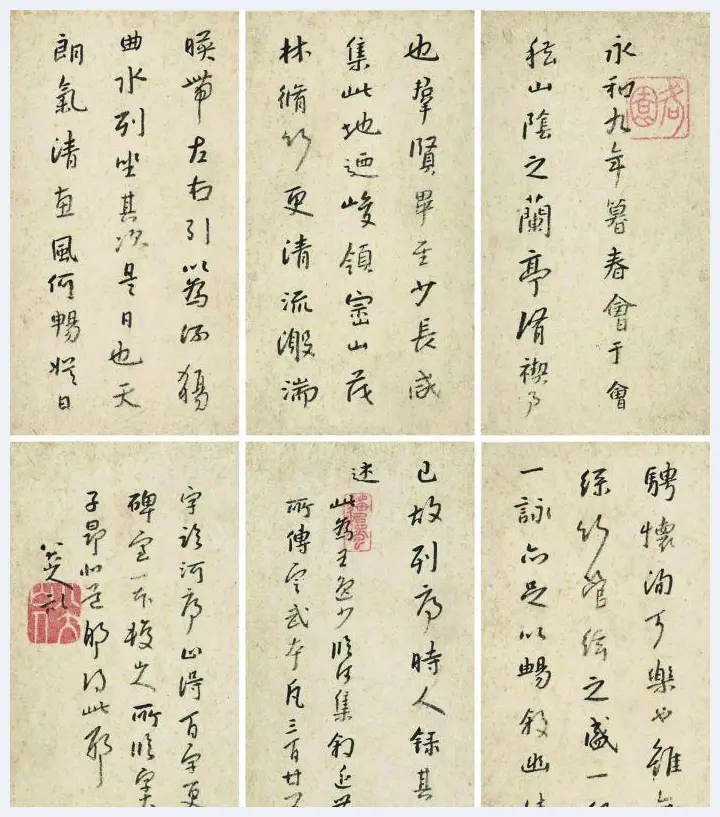 永和九年暮春會于會
稽山陰之蘭亭脩禊事
也羣賢畢至少長咸
集此地迺峻領崇山茂
林脩竹更清流激湍
暎帶左右引以為流觴
曲水列坐其次是日也天
朗氣清惠風何暢娛目
騁懷洵可樂也雖
絲竹管絃之盛一
一詠亦足以暢敘幽
已故列序時人錄其
述
此為王逸少臨河集敘
所傳定武本凡三百廿
字臨河序止得百字更
碑一本所臨字
子昂得此耶